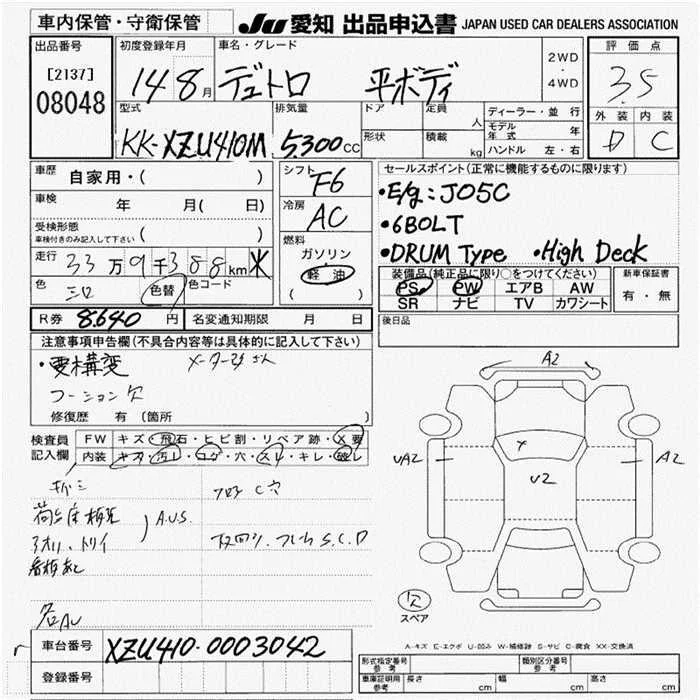 車内保管・守衛保管
JU 愛知 出品申込書 JAPAN USED CAR DEALERS ASSOCIATION
出品番号
[2137]
08048
初度登録年月
14 8月
車名・グレード
デュトロ 平ボディ
2WD
・
4WD
評価点
3.5
外装 内装
D C
型式
KK-XZU410M
排気量
5,300cc
ドア
定員
人
形状
積載
kg
ディーラー・並行
モデル年式 年
ハンドル 左・右
車歴
自家用・( )
車検
年 月( 日)
受検形態
車検付きのみ記入して下さい ( )
走行
33万9千388km
色
色替
色コード
シフト
F6
冷房
AC
燃料
ガソリン
軽油
( )
セールスポイント(正常に機能するものに限ります)
・E/g:J05C
・6BOLT
・DRUM Type ・High Deck
装備品(純正品に限り○をつけてください)
PS PW エアB AW
SR ナビ TV カワシート
新車保証書
有・無
R券 8.640円
名変通知期限 月 日
後日品
注意事項申告欄(不具合内容等は具体的に記入して下さい)
・要構変
コーション欠
修復歴 有(箇所 )
検査員
記入欄
FW キズ・飛石・ヒビ割・リペア跡・X要
内装 キズ・汚レ・コゲ・穴・スレ・キレ・破レ
フロア C穴
A.U.S.
S.C.D
A2
UA2
U2
A2
欠
スペア
A-キズ E-エクボ U-凹み W-補修跡 S-サビ C-腐食 XX-交換済
車台番号
XZU410-0003042
登録番号
形式指定番号
参考
類別区分番号
参考
車庫証明用
参考
長さ cm 幅 cm 高さ cm